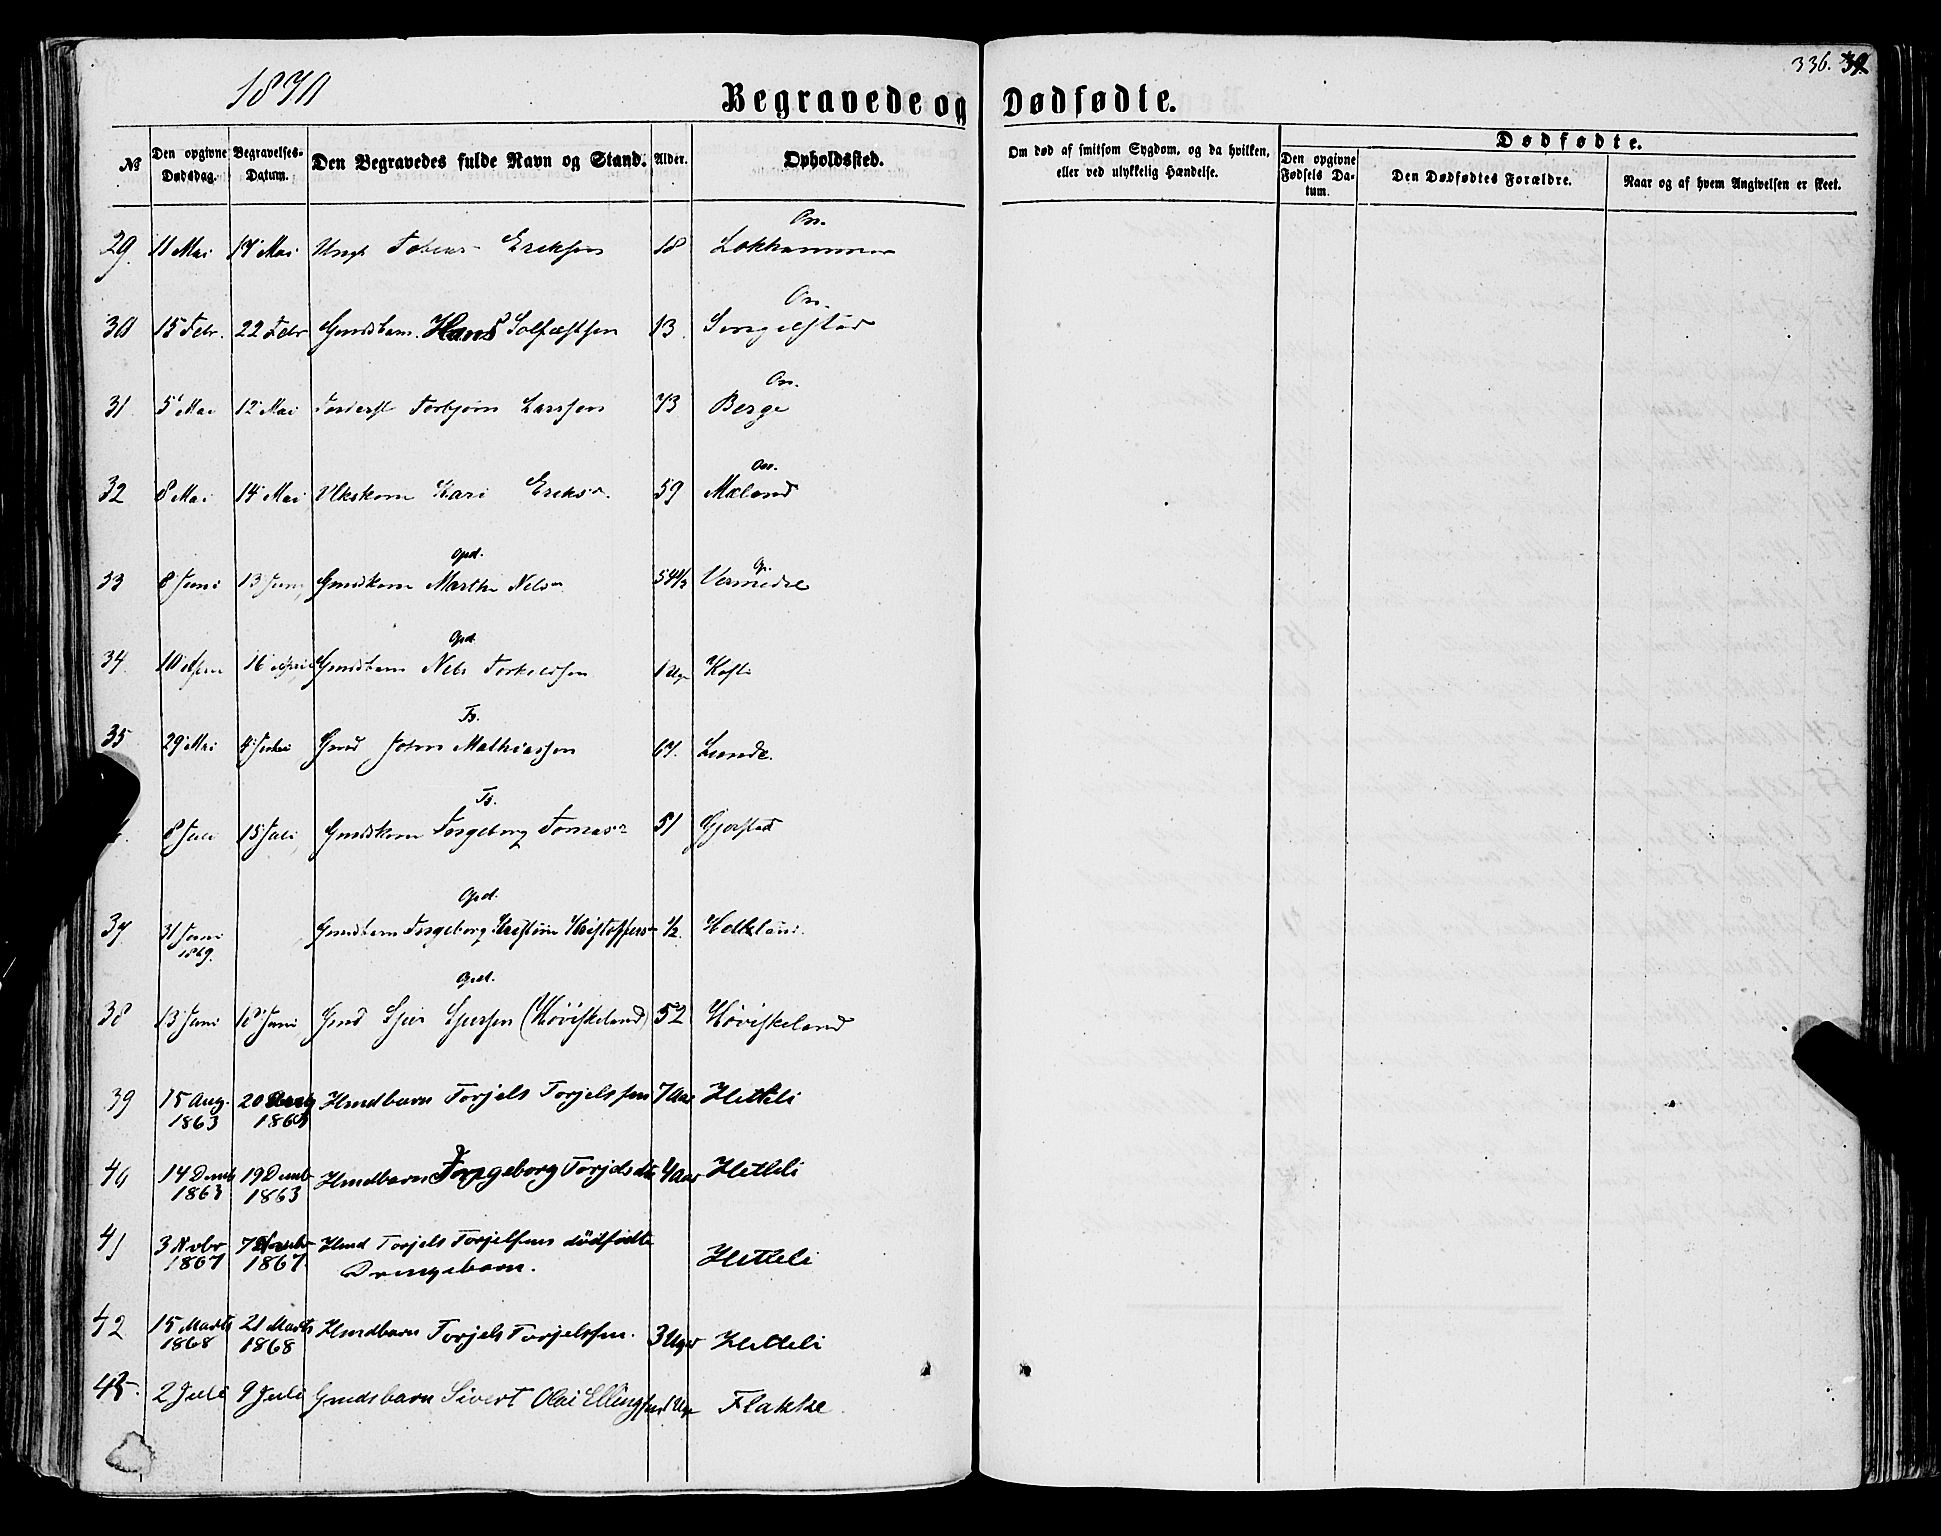 1870
336.
Begravede og Dødfødte.
№ Den opgivne Dødsdag. Begravelses-Datum. Den Begravedes fulde Navn og Stand. Alder. Opholdssted. Om død af smitsom Sygdom, og da hvilken, eller ved ulykkelig Hændelse. Dødfødte.
Den opgivne Fødsels Datum. Den Dødfødtes Forældre. Naar og af hvem Angivelsen er skeet.
Os.
29. 11 Mai 17 Mai Ungk Tobias Eriksen 18
Os.
30 15 Febr. 22 Febr Gmdsbarn Hans Solfæstsen 13
Os.
31. 5 Mai 12 Mai Torbjørn Larssen 73 Berge
Os.
32 8 Mai 14 Mai Kari Eriksdr. 59 Mæland
Gpd.
33 8 Juni 13 Juni Gmdskone Marthe Nelsdr
Gpd.
34. 16 April Gmdsbarn Nels Torkildsen 1 Uge
Ts.
35 29 Mai Gmd John Mathiassen 67. Lunde.
Ts.
8 Juli 15 Juli Gmdskone Ingeborg 51 Gjerstad
Gpd.
37 31 Juni 1869. Gmdsbarn Ingeborg Kristine Kristoffersdr ½.
Gpd.
38 13 Juni 18 Juni Gmd Sjur Sjursen (Høviskeland) 52 Høviskeland
39 15 Aug. 1863 20 Aug 1863 Hmdbarn Torjels Torjelssen 7 Aar Hetleli
40 14 Decmb 1863 19 Decmb 1863 Hmdbarn Ingeborg Torjelsdtr 4 Aar Hetleli
41 3 Novbr 1867 7 Novbr 1867 Hmd Torjels Torjelsens dødfødte Drengebarn. Hetleli
42 15 Marts 1868 21 Marts 1868 Hmdbarn Torjels Torjelssen. 3 Uger Hetleli
43. 2 Juli 9 Juli Gmdsbarn Sivert Olai Ellingsen 1 Uge Flakke